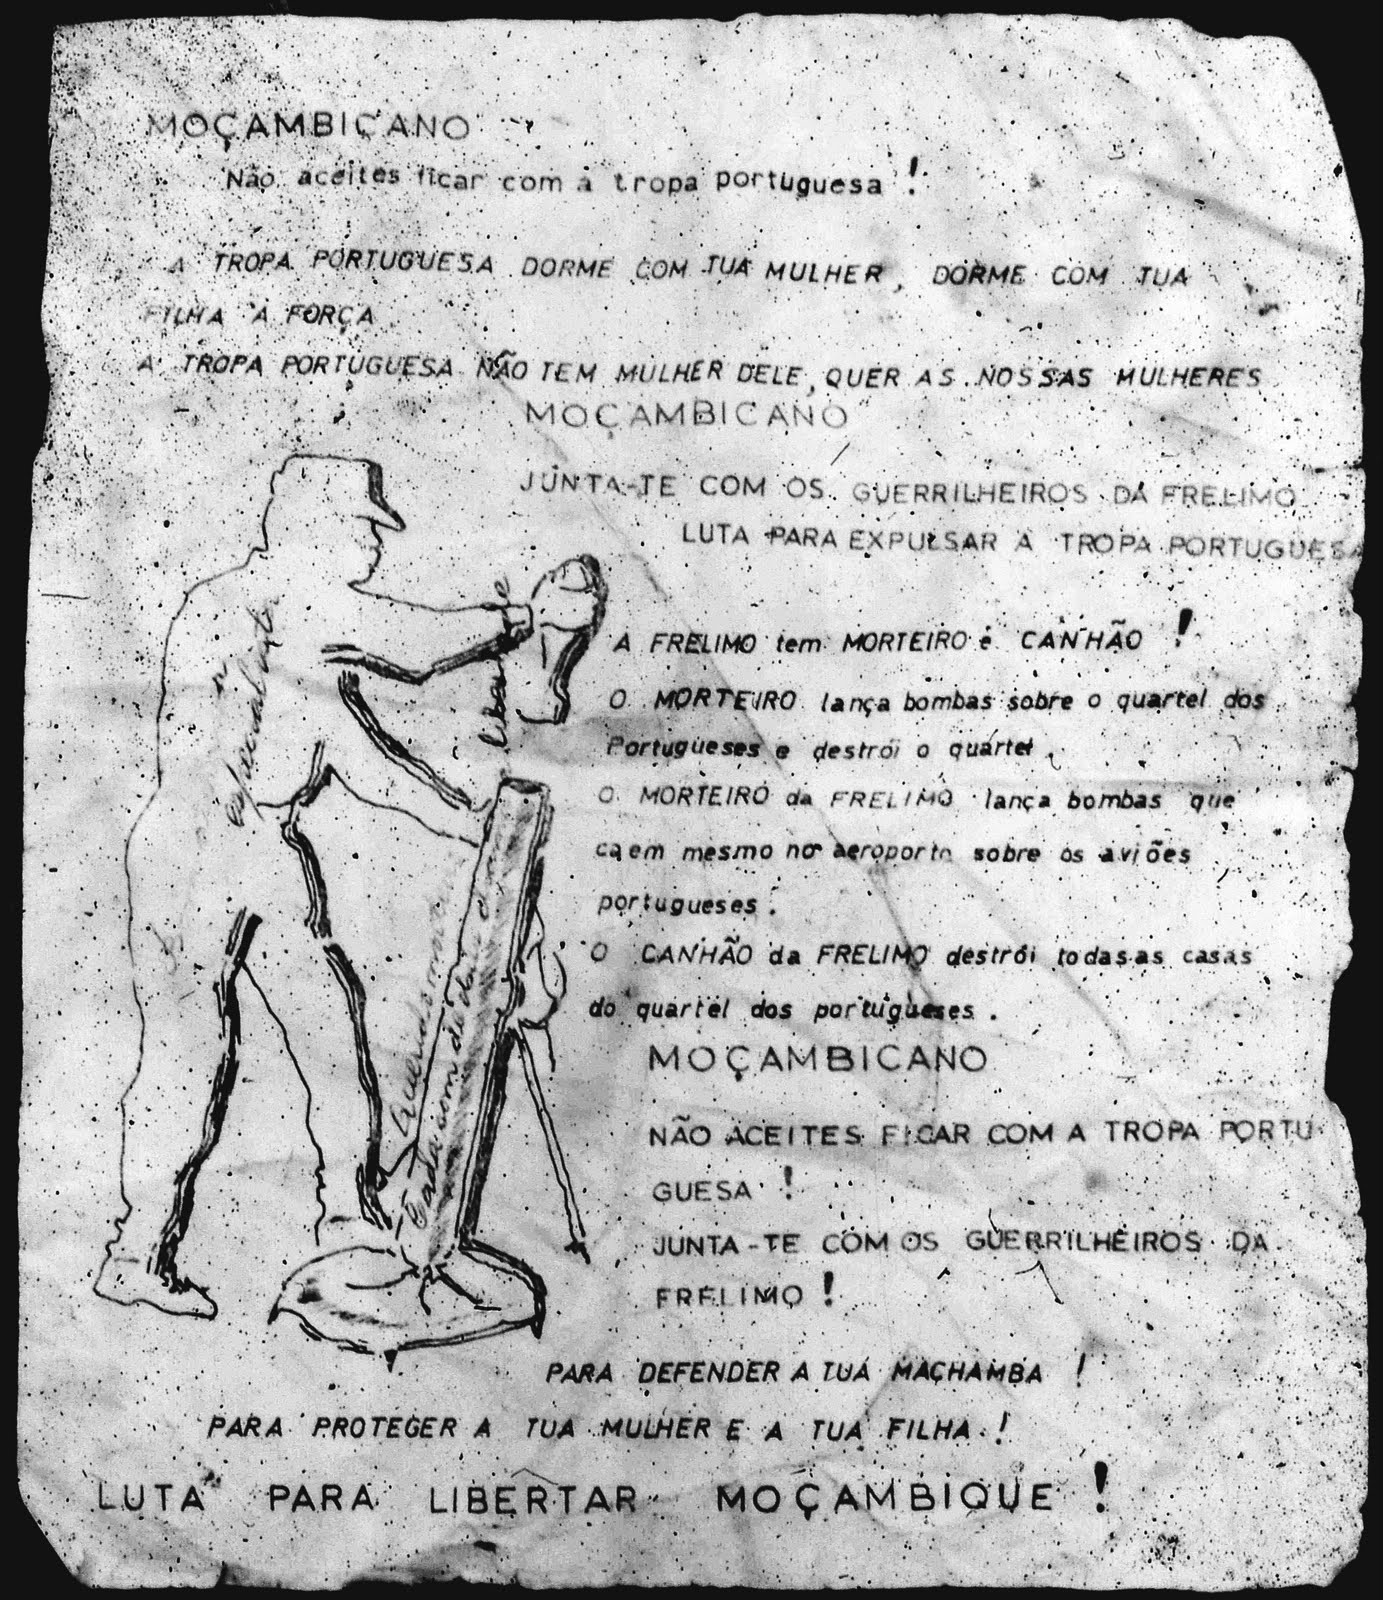 MOÇAMBIÇANO
Não aceites ficar com a tropa portuguesa !
A TROPA PORTUGUESA DORME COM TUA MULHER, DORME COM TUA
FILHA A FORÇA
A TROPA PORTUGUESA NÃO TEM MULHER DELE, QUER AS NOSSAS MULHERES
MOÇAMBICANO
JUNTA-TE COM OS GUERRILHEIROS DA FRELIMO
LUTA PARA EXPULSAR A TROPA PORTUGUESA
A FRELIMO tem MORTEIRO e CANHÃO !
O MORTEIRO lança bombas sobre o quartel dos
Portugueses e destrói o quartel.
O MORTEIRO da FRELIMO lança bombas que
caem mesmo no aeroporto sobre os aviões
portugueses.
O CANHÃO da FRELIMO destrói todas as casas
do quartel dos portugueses.
MOÇAMBICANO
NÃO ACEITES FICAR COM A TROPA PORTU
GUESA !
JUNTA-TE COM OS GUERRILHEIROS DA
FRELIMO !
PARA DEFENDER A TUA MACHAMBA !
PARA PROTEGER A TUA MULHER E A TUA FILHA !
LUTA PARA LIBERTAR MOÇAMBIQUE !